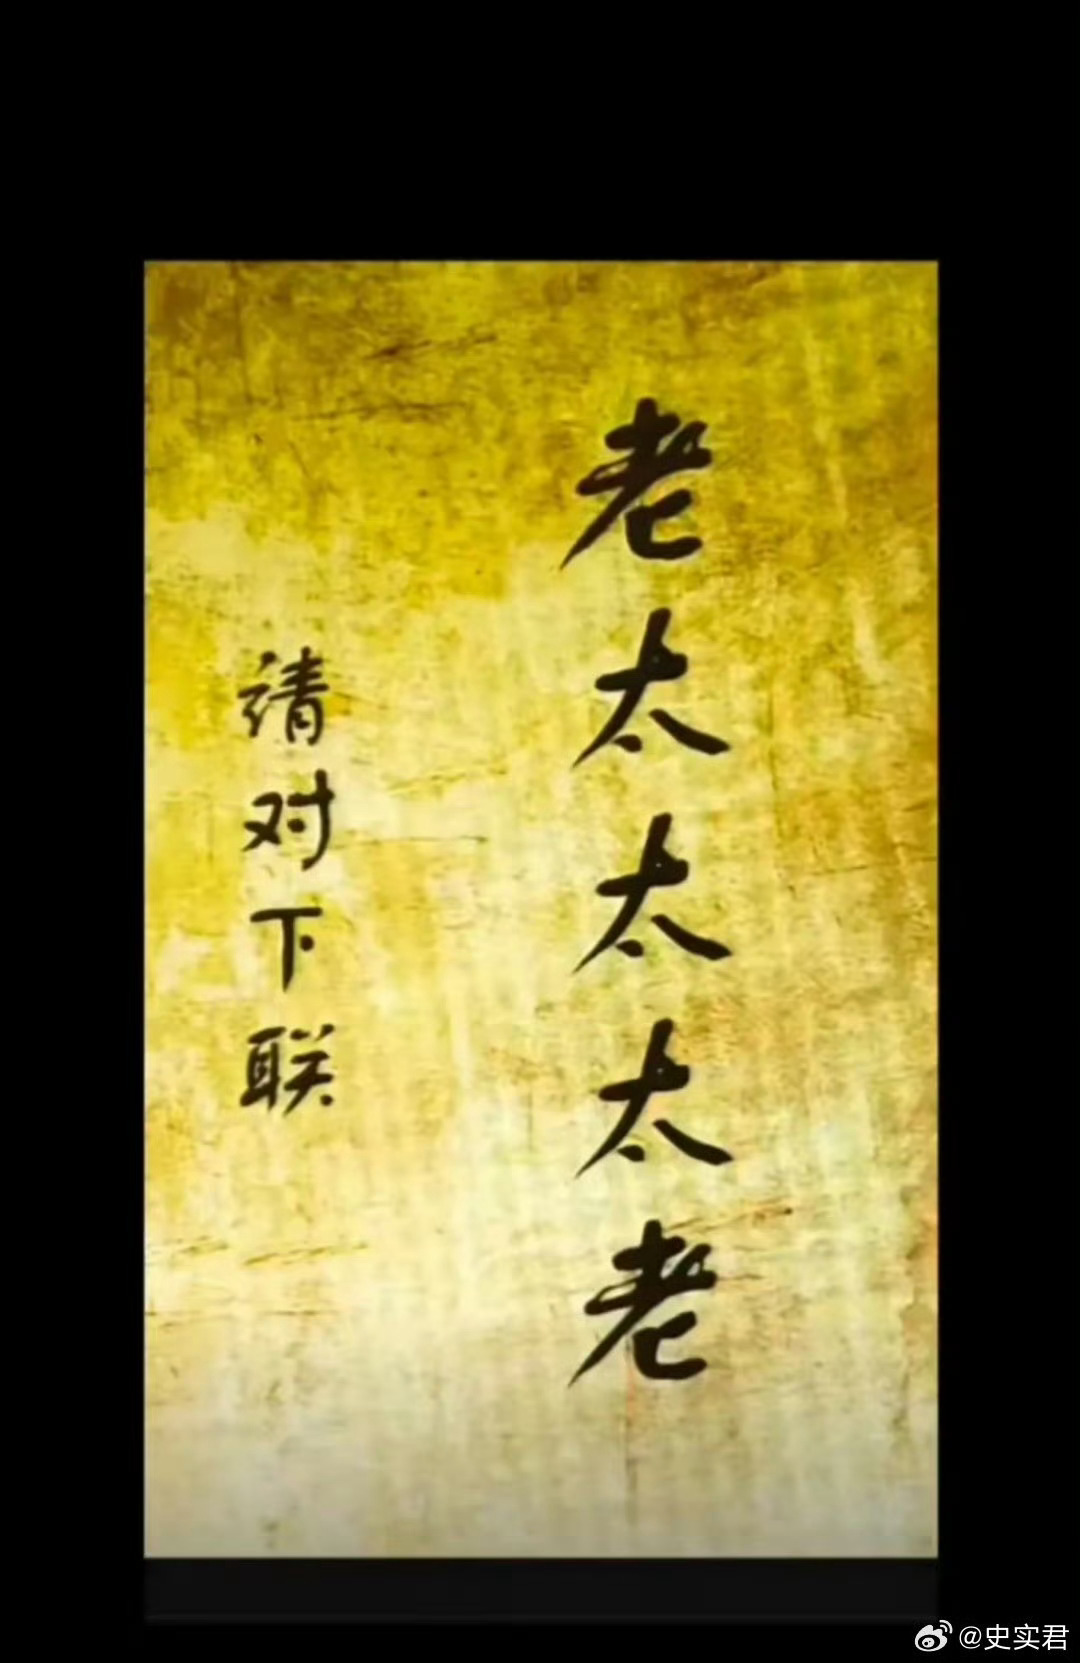 老太太太老
请对下联
@史实君